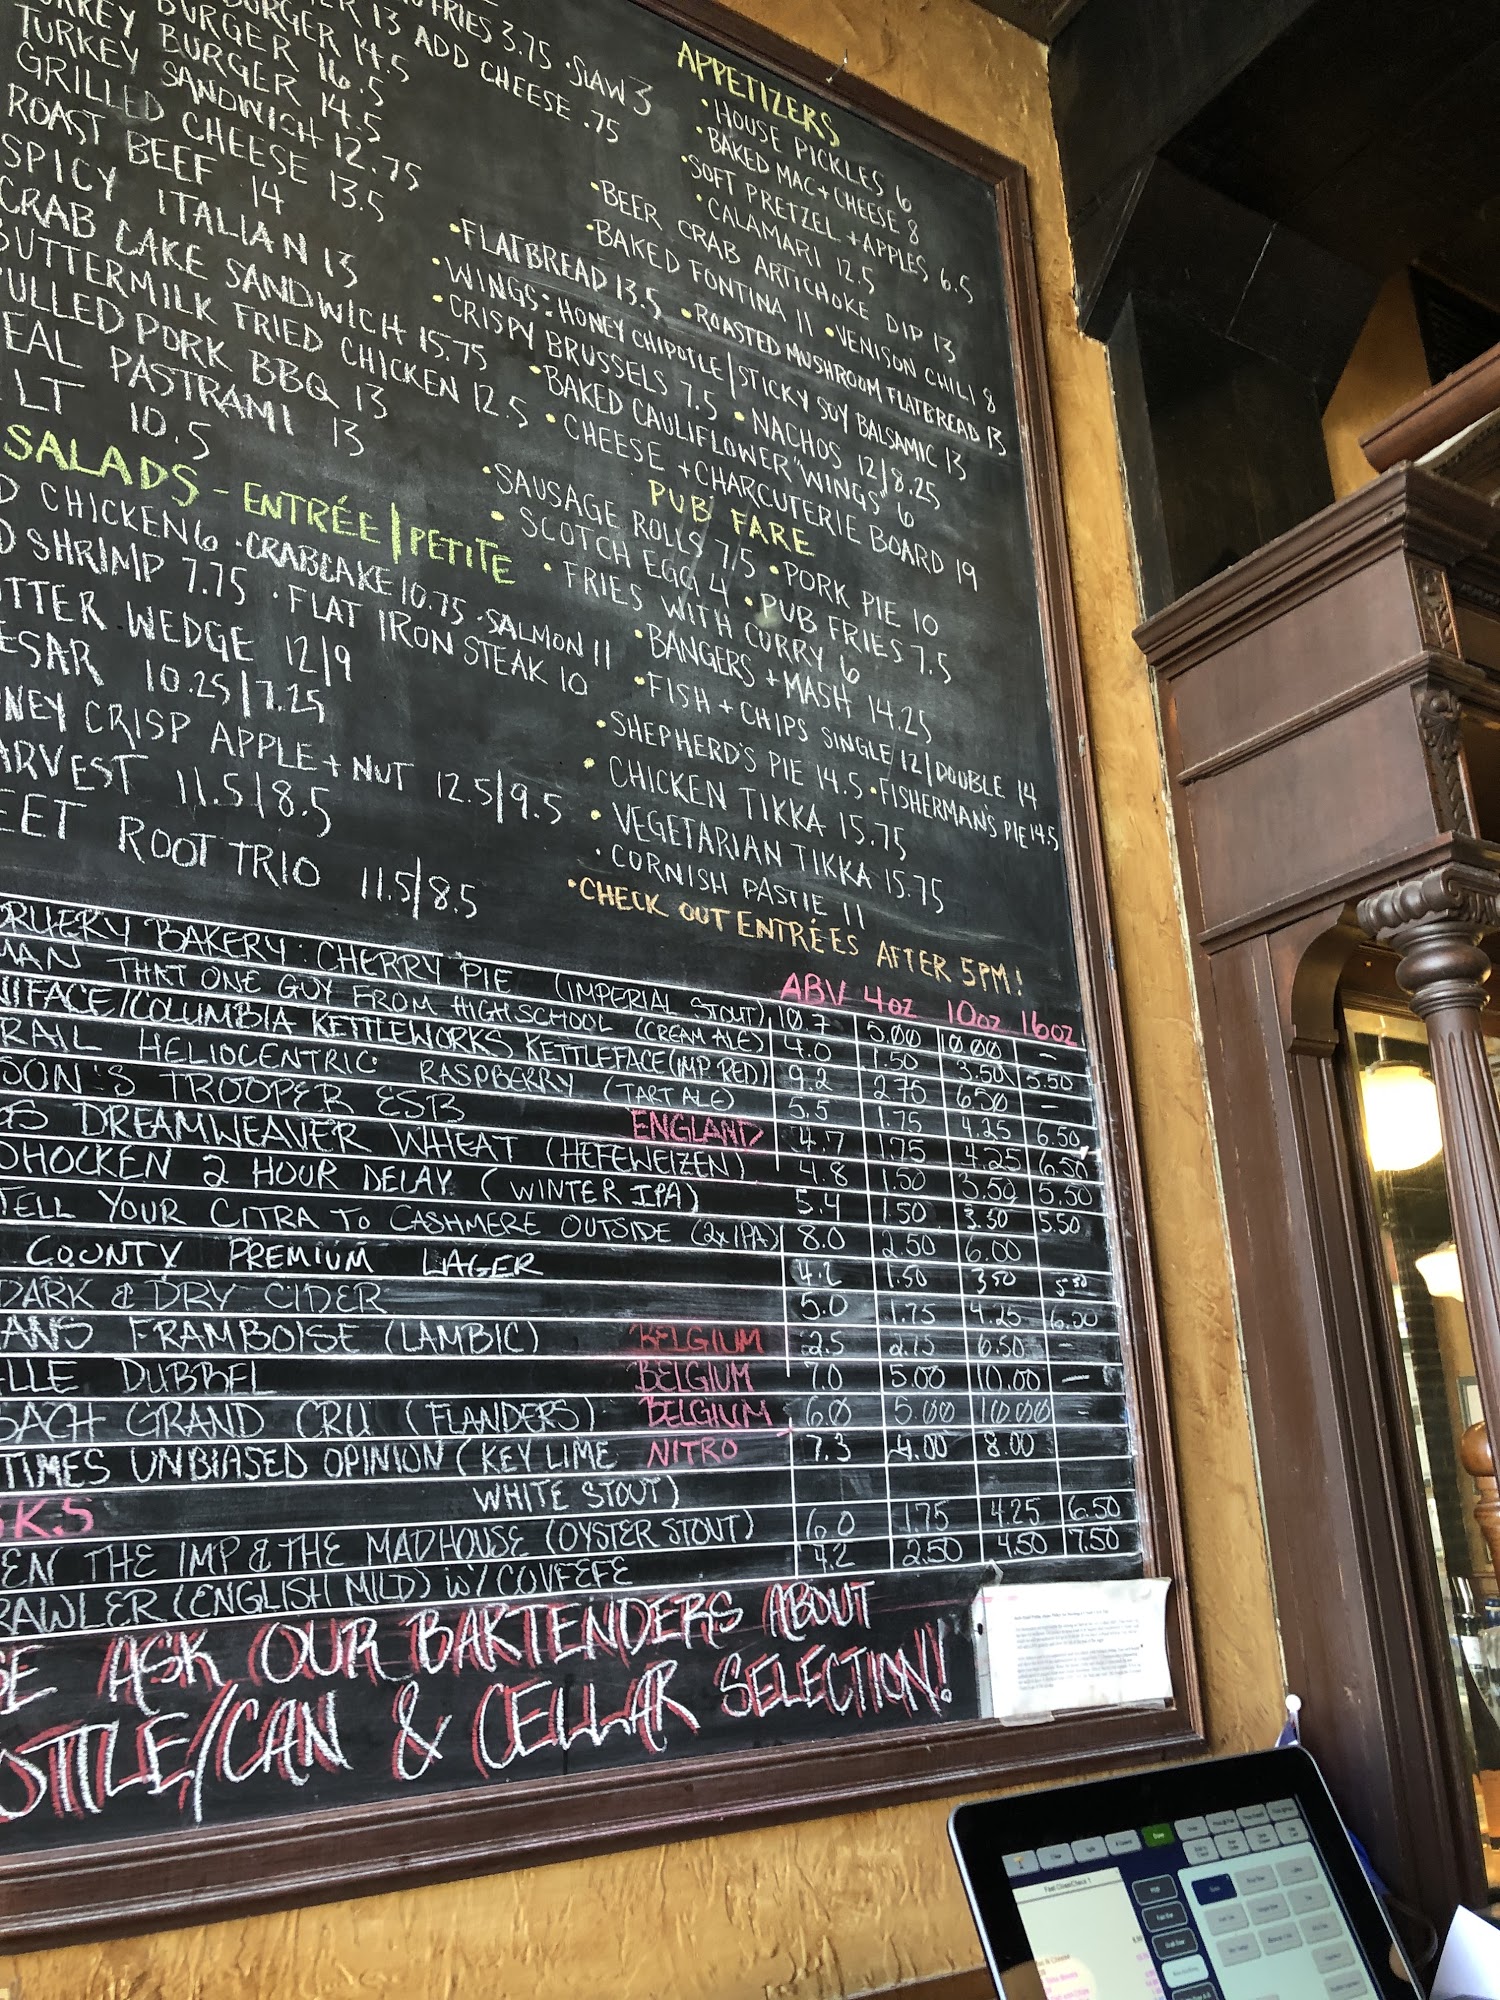 FRIES 3.75 • SLAW 3
BURGER 13 ADD CHEESE .75
BURGER 14.5
TURKEY BURGER 16.5
TURKEY SANDWICH 14.5
GRILLED CHEESE 12.75
ROAST BEEF 13.5
SPICY ITALIAN 14
CRAB CAKE SANDWICH 13
BUTTERMILK FRIED CHICKEN 15.75
PULLED PORK BBQ 12.5
EAL PASTRAMI 13
LT 10.5 13
SALADS - ENTRÉE | PETITE
D CHICKEN 6 • CRABCAKE 10.75 • SALMON 11
D SHRIMP 7.75 • FLAT IRON STEAK 10
TTER WEDGE 12|9
ESAR 10.25|7.25
NEY CRISP APPLE + NUT 12.5|9.5
ARVEST 11.5|8.5
EET ROOT TRIO 11.5|8.5
APPETIZERS
• HOUSE PICKLES 6
• BAKED MAC + CHEESE 8
• SOFT PRETZEL + APPLES 6.5
• CALAMARI 12.5
• BEER CRAB ARTICHOKE DIP 13
• BAKED FONTINA 11 • VENISON CHILI 8
• FLATBREAD 13.5 • ROASTED MUSHROOM FLATBREAD 13
• WINGS: HONEY CHIPOTLE | STICKY SOY BALSAMIC 13
• CRISPY BRUSSELS 7.5 • NACHOS 12|8.25
• BAKED CAULIFLOWER "WINGS" 6
• CHEESE + CHARCUTERIE BOARD 19
PUB FARE
• SAUSAGE ROLLS 7.5 • PORK PIE 10
• SCOTCH EGG 4 • PUB FRIES 7.5
• FRIES WITH CURRY 6
• BANGERS + MASH 14.25
• FISH + CHIPS SINGLE 12 | DOUBLE 14
• SHEPHERD'S PIE 14.5 • FISHERMAN'S PIE 14.5
• CHICKEN TIKKA 15.75
• VEGETARIAN TIKKA 15.75
• CORNISH PASTIE 11
• CHECK OUT ENTRÉES AFTER 5PM!
ABV 4oz 10oz 16oz
BAKERY: CHERRY PIE (IMPERIAL STOUT) 10.7 5.00 10.00 –
MAN THAT ONE GUY FROM HIGH SCHOOL (CREAM ALE) 4.0 1.50 3.50 5.50
NIFACE/COLUMBIA KETTLEWORKS KETTLEFACE (IMP RED) 9.2 2.75 6.50 –
RAIL HELIOCENTRIC RASPBERRY (TART ALE) 5.5 1.75 4.25 6.50
SON'S TROOPER ESB ENGLAND 4.7 1.75 4.25 6.50
GS DREAMWEAVER WHEAT (HEFEWEIZEN) 4.8 1.50 3.50 5.50
OHOCKEN 2 HOUR DELAY (WINTER IPA) 5.4 1.50 3.50 5.50
TELL YOUR CITRA TO CASHMERE OUTSIDE (2xIPA) 8.0 2.50 6.00
COUNTY PREMIUM LAGER 4.2 1.50 3.50 5.50
DARK & DRY CIDER 5.0 1.75 4.25 6.50
ANS FRAMBOISE (LAMBIC) BELGIUM 2.5 2.75 6.50 –
ELLE DUBBEL BELGIUM 7.0 5.00 10.00 –
BACH GRAND CRU (FLANDERS) BELGIUM 6.0 5.00 10.00 –
TIMES UNBIASED OPINION (KEY LIME NITRO 7.3 4.00 8.00
WHITE STOUT)
K.S
EN THE IMP & THE MADHOUSE (OYSTER STOUT) 6.0 1.75 4.25 6.50
RAWLER (ENGLISH MILD) w/ COVFEFE 4.2 2.50 4.50 7.50
SE ASK OUR BARTENDERS ABOUT
OTTLE/CAN & CELLAR SELECTION!